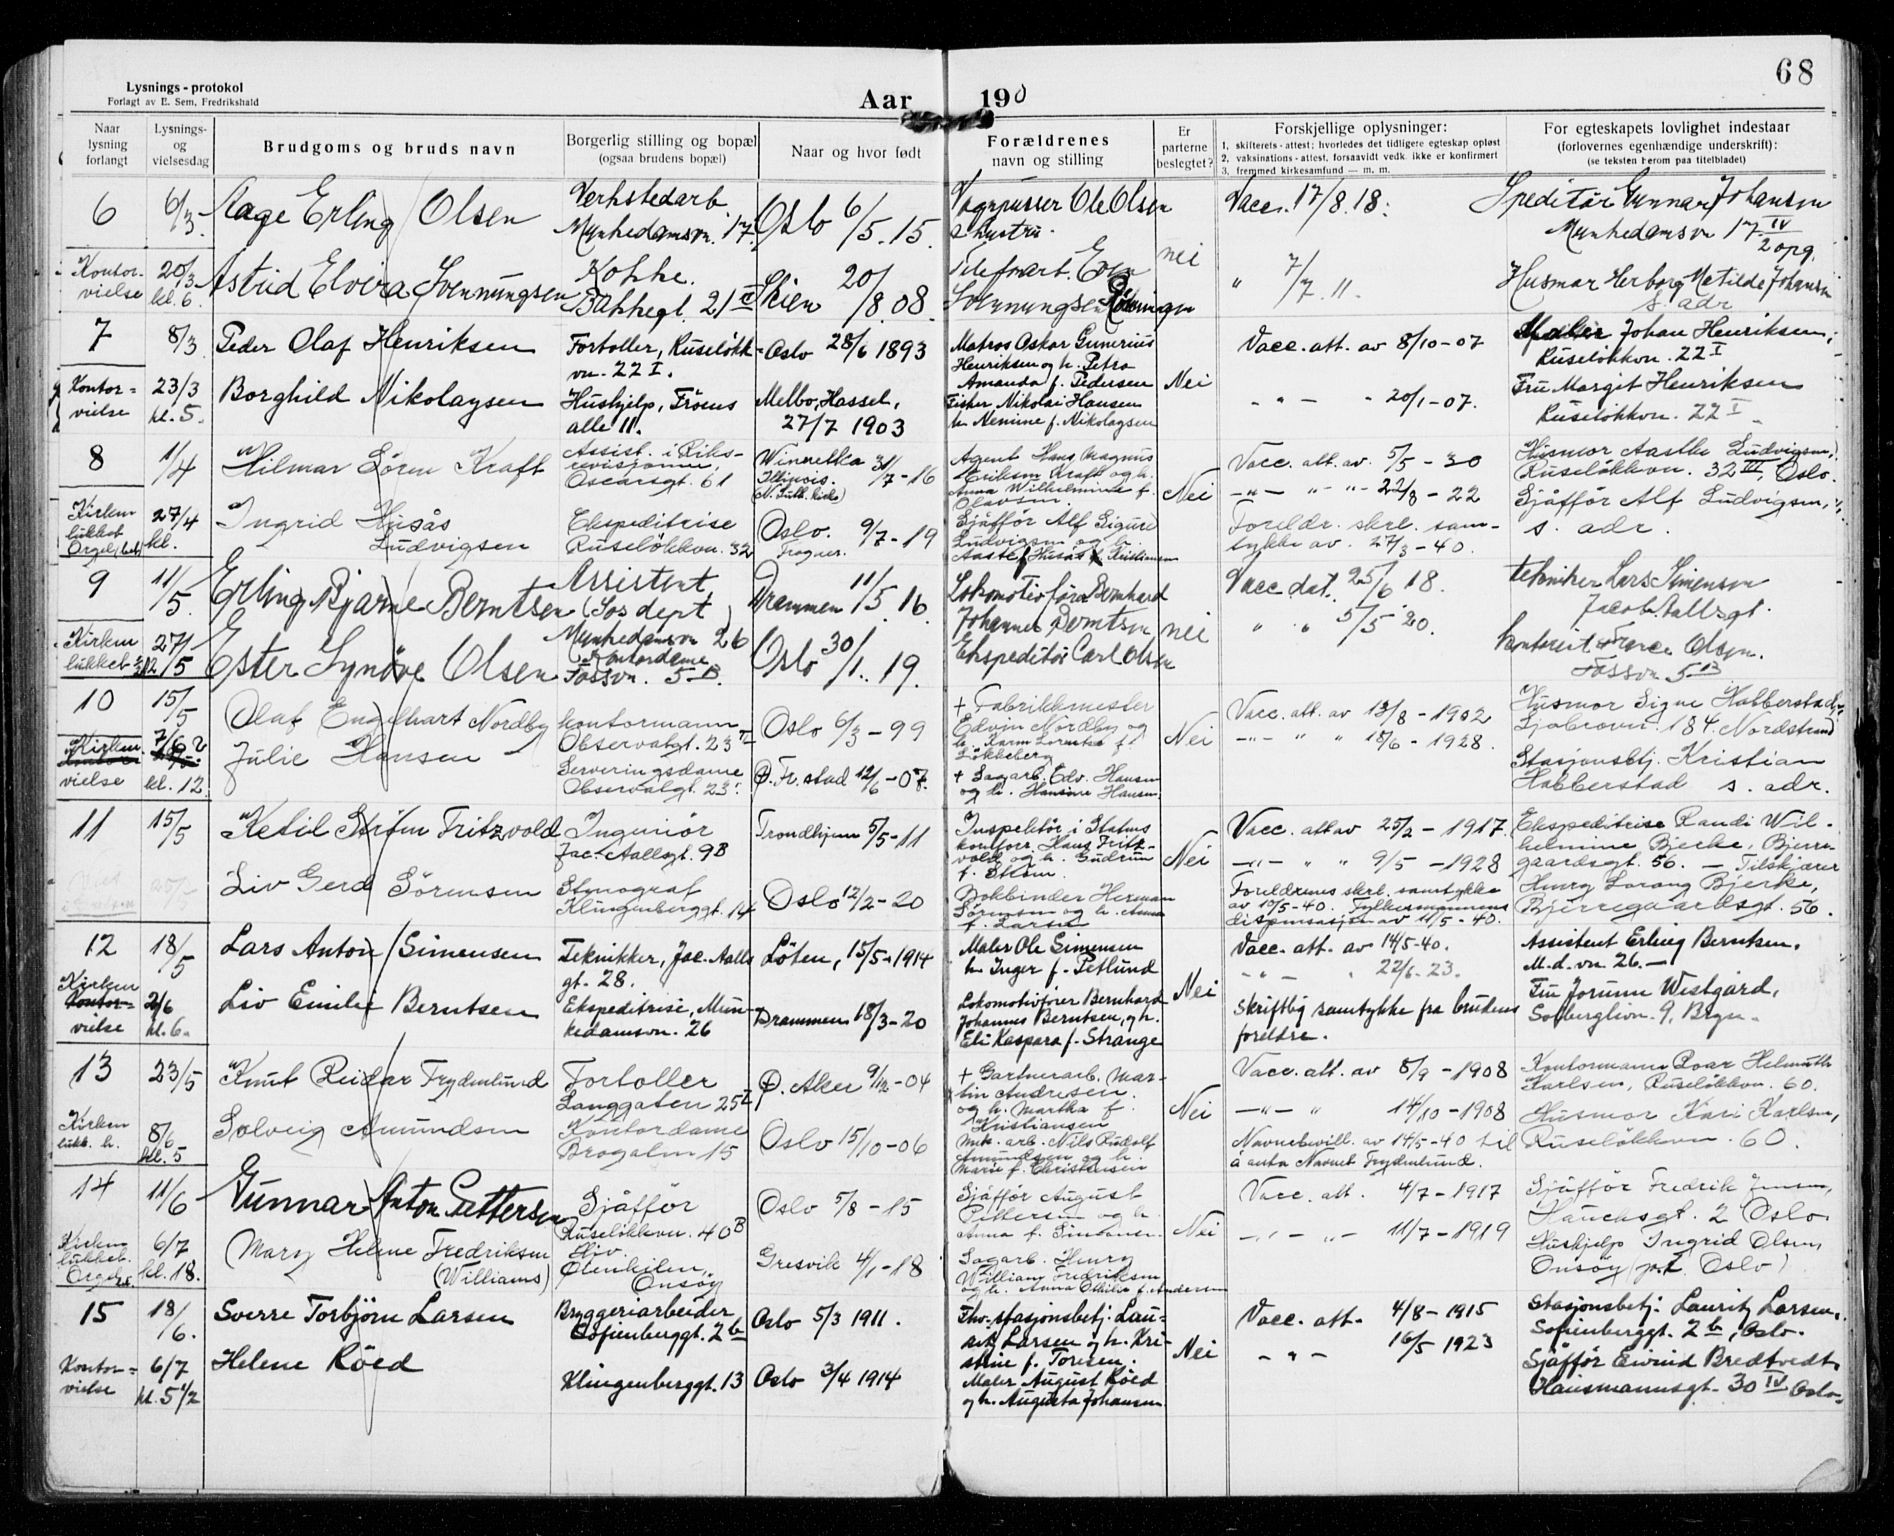 68
Lysnings-protokol
Forlagt av E. Sem, Fredrikshald
Aar 190
Naar lysning forlangt
Lysnings- og vielsesdag
Brudgoms og bruds navn
Borgerlig stilling og bopæl
(ogsaa brudens bopæl)
Naar og hvor født
Forældrenes
navn og stilling
Er parterne beslegtet?
Forskjellige oplysninger:
1, skifterets-attest; hvorledes det tidligere egteskap opløst
2, vaksinations-attest, forsaavidt vedk. ikke er konfirmert
3, fremmed kirkesamfund — m. m.
For egteskapets lovlighet indestaar
(forlovernes egenhændige underskrift):
(se teksten herom paa titelbladet)
6
6/3
Aage Erling Olsen
Verkstedarb
Munkedamsvn. 17.
Oslo 6/5.15.
Vognpusser Ole Olsen
& hustru.
nei
Vacc. 17/8.18.
Speditör Gunnar Johansen
Munkedamsvn 17 IV
2 opg.
Kontor-
vielse
20/3
kl. 6.
Astrid Elvira Svenningsen
Kokke.
Bakkegt. 21 c
Skien 20/8.08.
" 7/7.11.
Husmor Herborg Matilde Johansen
s. adr
7
8/3
Peder Olaf Henriksen
Fortoller, Ruseløkk-
vn. 22 I.
Oslo 28/6 1893
Matros Oskar Gunerius
Henriksen og h. Petra
Amanda f. Pedersen
Nei
Vacc. att. av 8/10-07
Maler Johan Henriksen,
Ruseløkkvn. 22 I
Kontor-
vielse
23/3
kl. 5.
Borghild Nikolaysen
Hushjelp, Frøens
alle 11.
Melbo, Hassel,
27/7 1903
Fisker Nikolai Hansen
h. Nemine f. Nikolaysen
- " - " 20/1-07.
Fru Margit Henriksen
Ruseløkkvn. 22 I
8
1/4
Hilmar Sören Kraft
Assist. i Riks-
revisjonen,
Oscarsgt. 61
Winnetka 31/7-16
Illinois.
(N. Luth. kirke)
Agent Hans Magnus
Eriksen Kraft og h.
Anna Wilhelmine f.
Olavsen
Nei
Vacc. att. av. 5/5-30
Husmor Aasthe Ludvigsen,
Ruseløkkvn. 32 III, Oslo.
Kirken
lukket
Orgel
27/4
kl.
Ingrid Husås
Ludvigsen
Ekspeditrise
Ruseløkkvn. 32
Oslo. 9/7-19
Frogner.
Sjåffør Alf Sigurd
Ludvigsen og h.
Aaste f. Husås Kristiansen
-"- " -"- 22/8-22
Foreldr. skrl. sam-
tykke av. 27/3-40.
Sjåffør Alf Ludvigsen,
s. adr.
9
11/5
Erling Bjarne Berntsen
Assistent,
(Sos dept)
Munkedamsvn 26
Drammen 11/5.16.
Lokomotivfører Bernhard
Johannes Berntsen
nei
Vacc dat. 25/6 18.
tekniker Lars Simensen
Jacob Aallsgt.
Kirken
lukket
27/5
Ester Synöve Olsen
Kontordame
Fossvn. 5 B.
Oslo 30/1. 19.
Ekspeditör Carl Olsen
" " 5/5 20.
Olsen.
Fossvn 5 B
10
15/5
Olaf Engelhart Nordby
kontormann
Observatgt. 23 II
Oslo 6/3-99
+ Fabrikkmester
Edvin Nordby og
h. Karen Lorentse f.
Løkkeberg
Nei
Vacc. att. av 13/8-1902
Husmor Signe Habberstad,
Ljabrovn. 184. Nordstrand
Kirken.
vielse
7/6
kl. 12.
Julie Hansen
Serveringsdame
Observatgt. 23.
Ø. Fr.stad 12/6-07.
+ Sagarb. Edv. Hansen
og h. Hansine Hansen.
-"- " " 15/6-1928.
Stasjonsbtj. Kristian
Habberstad s. adr.
11
15/5
Ketil Strøm Fritzvold
Ingeniör
Jac. Aallsgt. 9B
Trondhjem 5/5-11
Inspektör i Statens
kornforr. Hans Fritz-
vold og h. Gudrun
f. Strøm.
Nei
Vacc. att av 25/2-1917.
Ekspeditrise Randi Wil-
helmine Bjerke, Bjerre-
gaardsgt. 56.
Liv Gerd Sörensen
Stenograf
Klingenberggt. 14
Oslo 12/2-20
Bokbinder Herman
Sörensen og h. Anna
f. Larsen
-"- " " 9/5-1928
Foreldrenes skrl. samtykke
av 10/5-40. Fylkesmannens
dispensasjon av 11/5-40.
Tilskjærer
Henry Lorang Bjerke,
Bjerregaardsgt. 56.
12
18/5
Lars Anton Simensen
Teknikker, Jac. Aalls
gt. 28.
Løten, 15/5-1914
Maler Ole Simensen
h. Inger f. Petlund
Nei
Vacc. att. av 14/5-40.
Assistent Erling Berntsen.
M.d. vn. 26.-
Kirken
vielse
2/6
kl. 6.
Liv Emilie Berntsen
Ekspeditrise, Mun-
kedamsvn. 26
Drammen 18/3-20
Lokomotivfører Bernhard
Johannes Berntsen, og h.
Eli Kaspara f. Strange
- " - " 22/6-23.
Skriftlig samtykke fra brudens
foreldre.
Fru Jorunn Westgård,
Solberglivn. 9, Bryn.
13
23/5
Knut Reidar Frydenlund
Fortoller
Langgaten 25 I
Ø. Aker 9/12-04
+ Gartnerarb. Mar-
tin Andresen.
og h. Martha f.
Kristiansen
Nei
Vacc. att. av 8/9-1908
Kontormann Roar Helmuth
Karlsen, Ruseløkkvn. 60.
Kirken
lukk. h.
8/6
kl. 5
Solveig Amundsen
Kontordame
Brogatm 15
Oslo 15/10-06
Mek. arb. Nils Rudolf
Amundsen og h.
Marie f. Christensen
-"- " 14/10-1908
Navnebevill. av 14/5-40 til
å anta Navnet Frydenlund.
Husmor Kari Karlsen,
Ruseløkkvn. 60.
14
11/6
Gunnar Anton Pettersen
Sjåffør
Ruseløkkvn. 40 B
Oslo 5/8-15
Sjåffør August
Pettersen og h.
Anna f. Simonsen.
Nei
Vacc. att. 4/7-1917
Sjåffør Fredrik Jensen,
Hauchsgt. 2 Oslo.
Kirken
lukket.
Orgel
6/7
kl. 18.
Mary Helene Fredriksen
(Williams)
Ølenkilen,
Onsöy
Gresvik 4/1-18
Sagarb. Henry
William Fredriksen
og h. Anna Othilie f. Andersen
-"- -"- 11/7-1919
Hushjelp Ingrid Olsen,
Onsöy (p.t. Oslo)
15
18/6.
Sverre Torbjørn Larsen
Bryggeriarbeider
Sofienberggt. 2b
Oslo 5/3 1911.
Fhv. stasjonsbetj. Lau-
ritz Larsen og h. Kri-
stine f. Toresen.
Nei
Vacc. att. 4/8-1915
Stasjonsbetj. Lauritz Larsen.
Sofienberggt. 2b, Oslo.
Kontor-
vielse
6/7
kl. 5 1/2
Helene Röed
Klingenberggt. 13
Oslo 3/4 1914
Maler August Röed
og h. Augusta Johansen
- " - 16/5 1923
Sjåffør Eivind Bredtvedt,
Hausmannsgt. 30 IV Oslo.